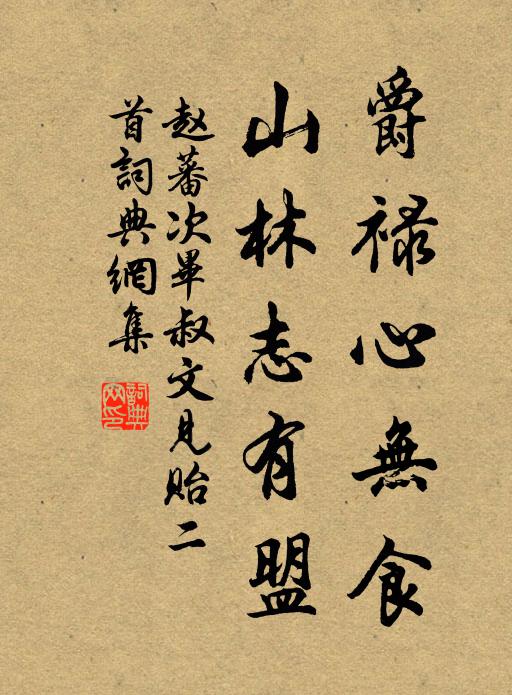 爵禄心無食
山林志有盟
赵蕃次畢叔文見貽二
首詞典網集
詞典網印